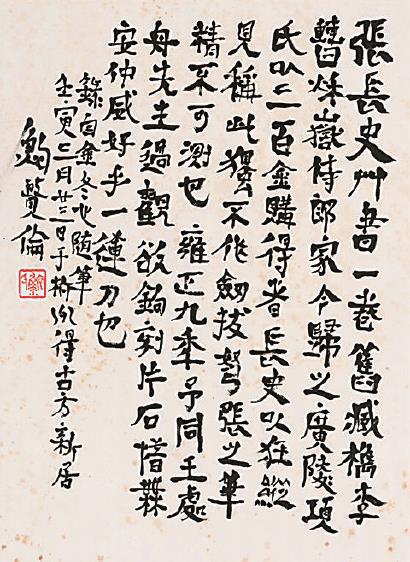 張長史艸書一卷舊藏檇李
曹秋嶽侍郎家今歸之廣陵項
氏以二百金購得者長史以狂縱
見稱此獨不作劍拔弩張之筆
精不可測也雍正九年予同王處
舟先生過觀欲鉤刻片石惜無
安仲威好手一運刀也
錄自金冬心随筆
壬寅三月廿三日于杭州得古方新居
鮑賢倫